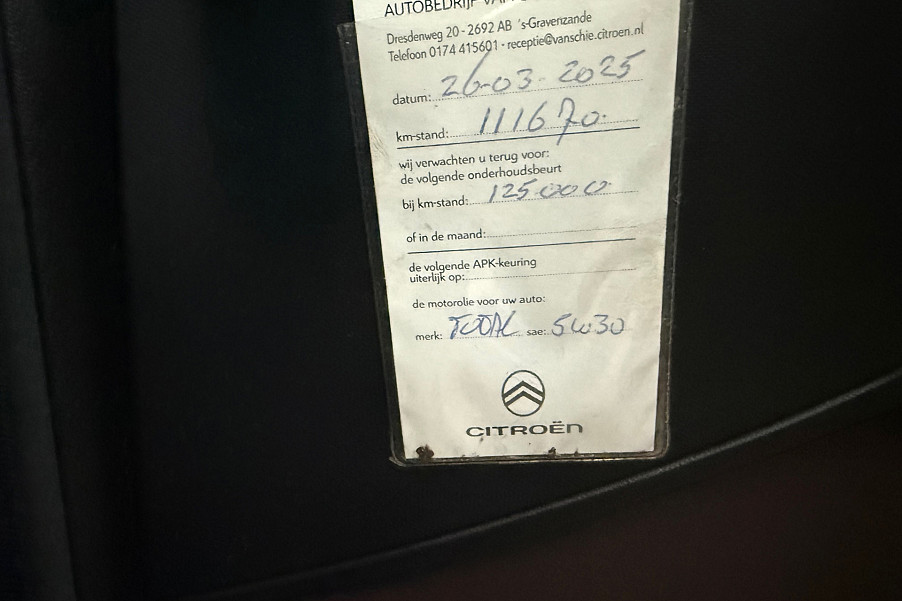 AUTOBEDRIJF VAN
Dresdenweg 20 - 2692 AB 's-Gravenzande
Telefoon 0174 415601 - receptie@vanschie.citroen.nl
datum: 26-03-2025
km-stand: 111670.
wij verwachten u terug voor:
de volgende onderhoudsbeurt
bij km-stand: 125000
of in de maand:
de volgende APK-keuring
uiterlijk op:
de motorolie voor uw auto:
merk: TOTAL sae: 5W30
CITROËN